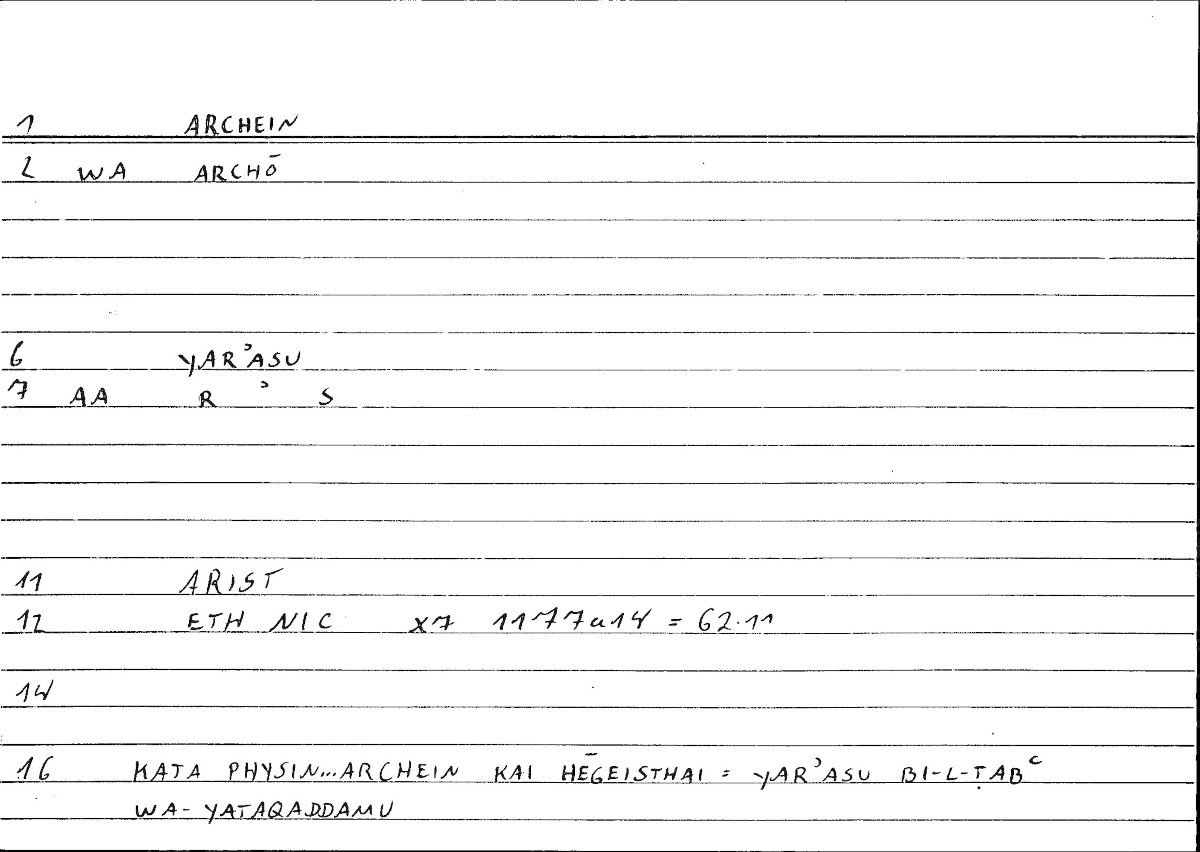 1 ARCHEIN
2 WA ARCHŌ
6 YARʾASU
7 AA R ʾ S
11 ARIST
12 ETH NIC X7 1177a14 = 62.11
14
16 KATA PHYSIN...ARCHEIN KAI HĒGEISTHAI = YARʾASU BI-L-ṬABʿ
WA-YATAQADDAMU